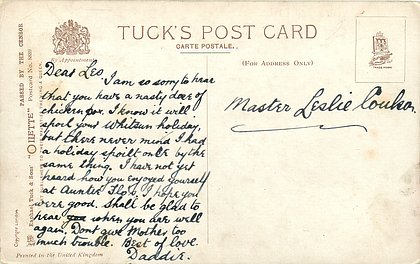 TUCK'S POST CARD
CARTE POSTALE.
(FOR ADDRESS ONLY)
PASSED BY THE CENSOR
"OILETTE"
Raphael Tuck & Sons'
Postcard No.
Copyright
Printed in the United Kingdom
Dear Leo.
I am so sorry to hear
that you have a nasty dose of
chickenpox. I know it will
spoil your Whitsun holiday,
but there never mind I had
a holiday spoilt once by the
same thing. I have not yet
heard how you enjoyed yourself
at Auntie Flo's. I hope you
were good. Shall be glad to
hear when you are well
again. Dont give Mother too
much trouble. Best of love.
Dadder.
Master Leslie Coulson.